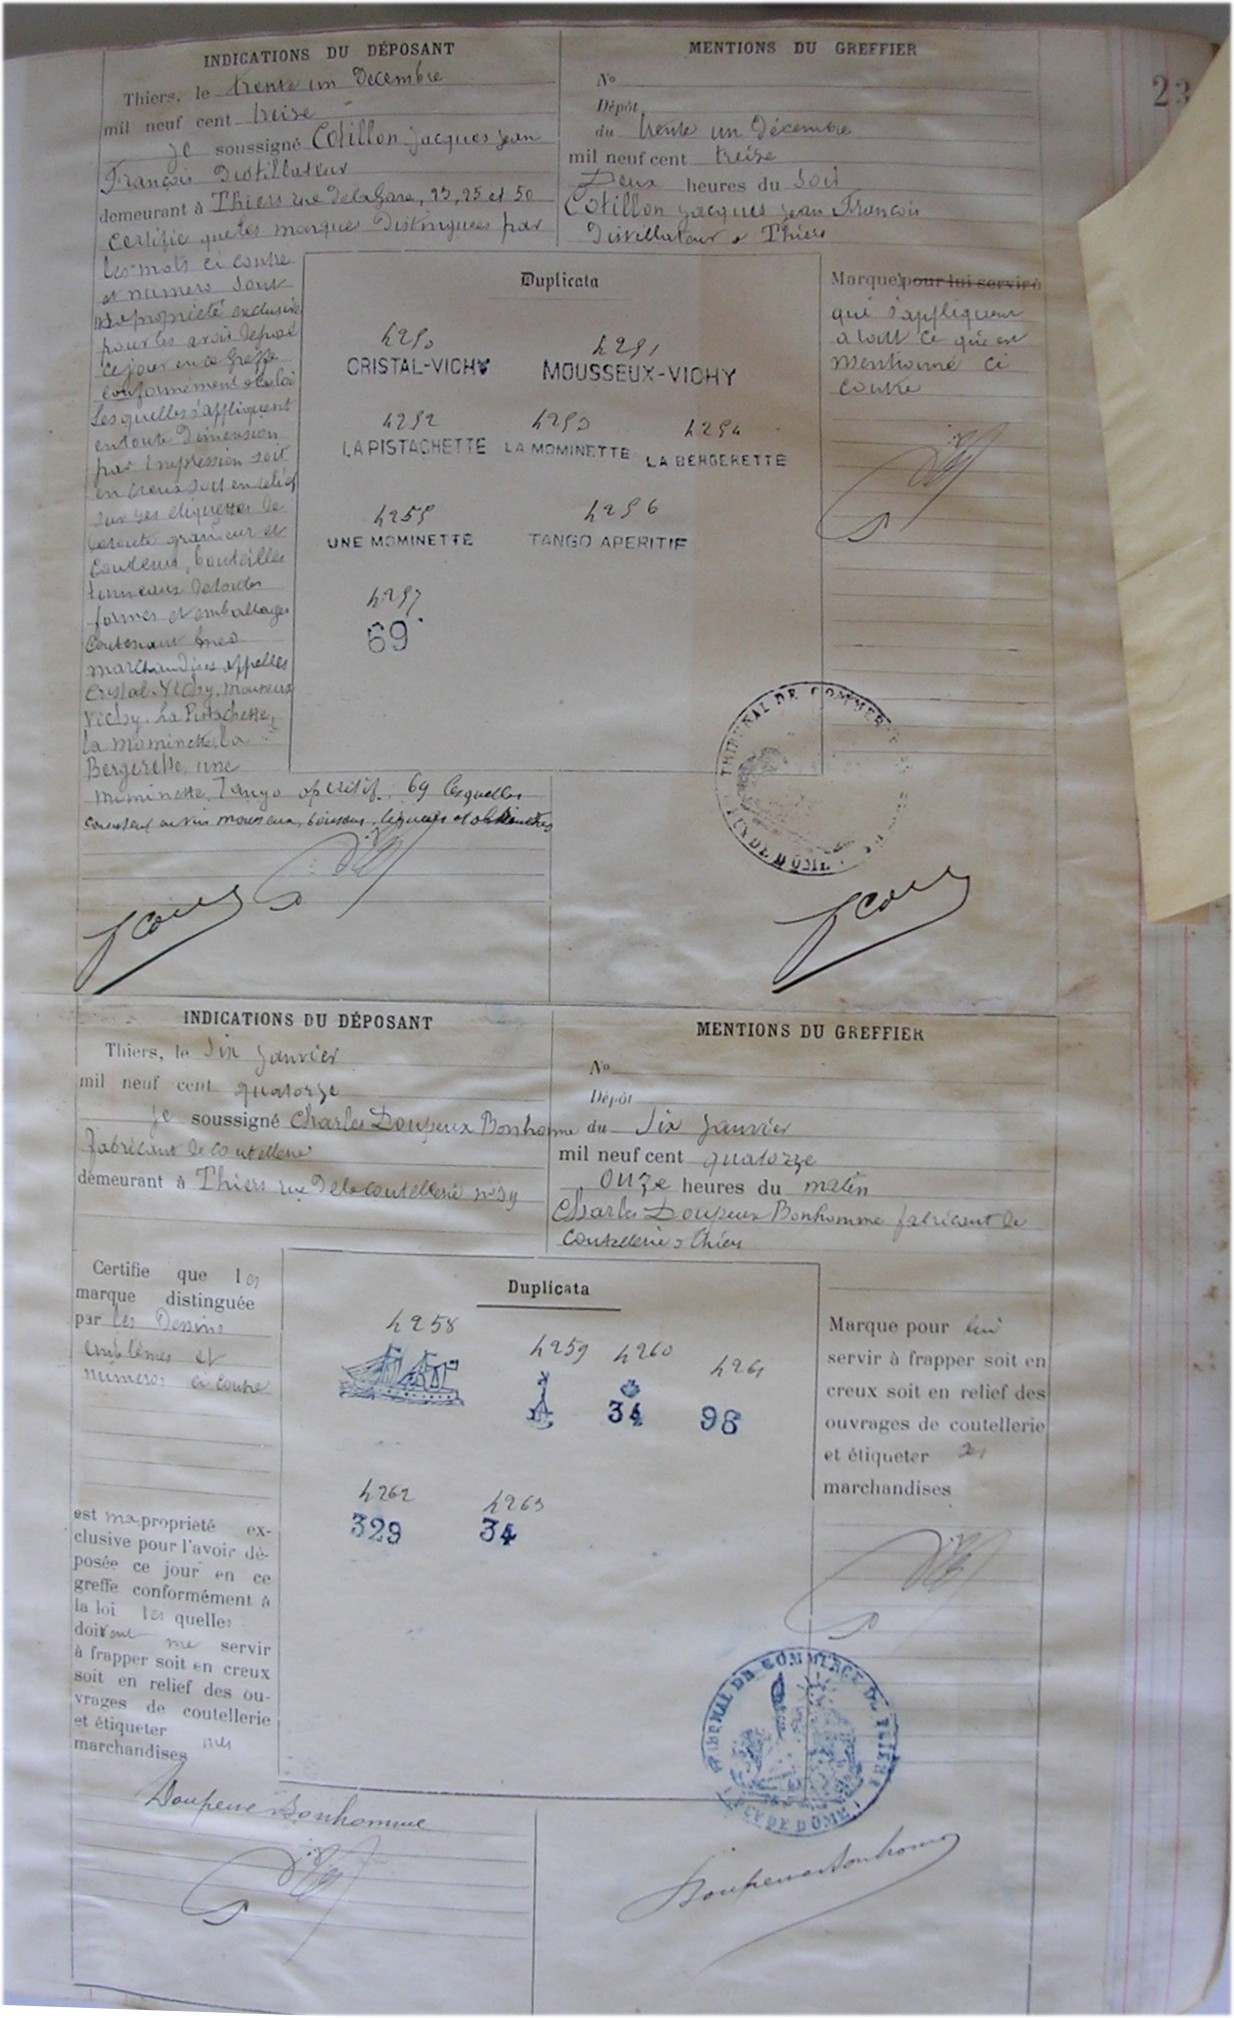 23
INDICATIONS DU DÉPOSANT
Thiers, le trente un Decembre
mil neuf cent treise
je soussigné Cotillon jacques jean
François Distillateur
demeurant à Thiers rue de la Gare, 23, 25 et 50
certifie que les marques Distinguées par
les mots ci contre
et numero sont
ma propriété exclusive
pour les avoir déposé
ce jour en ce Greffe
conformément a la loi
les quelles s'appliquent
en toute Dimension
par impression soit
en creux soit en relief
sur les etiquettes de
toute grandeur et
couleur, bouteilles
tonneaux de toutes
formes et emballages
contenant mes
marchandises appelées
Cristal-Vichy, Mousseux
Vichy, La Pistachette,
la Mominette, la
Bergerette, une
Mominette, Tango apéritif, 69 lesquelles
consistent en vins mousseux, boissons, liqueurs et
MENTIONS DU GREFFIER
No
Dépôt
du trente un Décembre
mil neuf cent treize
Deux heures du Soir
Cotillon jacques jean François
Distillateur a Thiers
Marques pour lui servir à
qui s'appliquent
a tout ce qui est
mentionné ci
contre
Duplicata
4250
CRISTAL-VICHY
4251
MOUSSEUX-VICHY
4252
LA PISTACHETTE
4253
LA MOMINETTE
4254
LA BERGERETTE
4255
UNE MOMINETTE
4256
TANGO APERITIF
4257
69
TRIBUNAL DE COMMERCE
PUY DE DÔME
INDICATIONS DU DÉPOSANT
Thiers, le Six Janvier
mil neuf cent quatorze
je soussigné Charles Doupeux Bonhomme
fabricant de coutellerie
demeurant à Thiers rue de la coutellerie
Certifie que les
marque distinguée
par les Dessins
emblèmes et
numeros ci contre
est ma propriété ex-
clusive pour l'avoir dé-
posée ce jour en ce
greffe conformément à
la loi les quelles
doivent me servir
à frapper soit en creux
soit en relief des ou-
vrages de coutellerie
et étiqueter mes
marchandises
MENTIONS DU GREFFIER
No
Dépôt
du Six Janvier
mil neuf cent quatorze
Onze heures du matin
Charles Doupeux Bonhomme fabricant de
coutellerie a Thiers
Marque pour lui
servir à frapper soit en
creux soit en relief des
ouvrages de coutellerie
et étiqueter ses
marchandises
Duplicata
4258
4259
4260
34
4261
98
4262
329
4263
34
TRIBUNAL DE COMMERCE DE THIERS
PUY DE DÔME
Doupeux Bonhomme
Doupeux Bonhomme